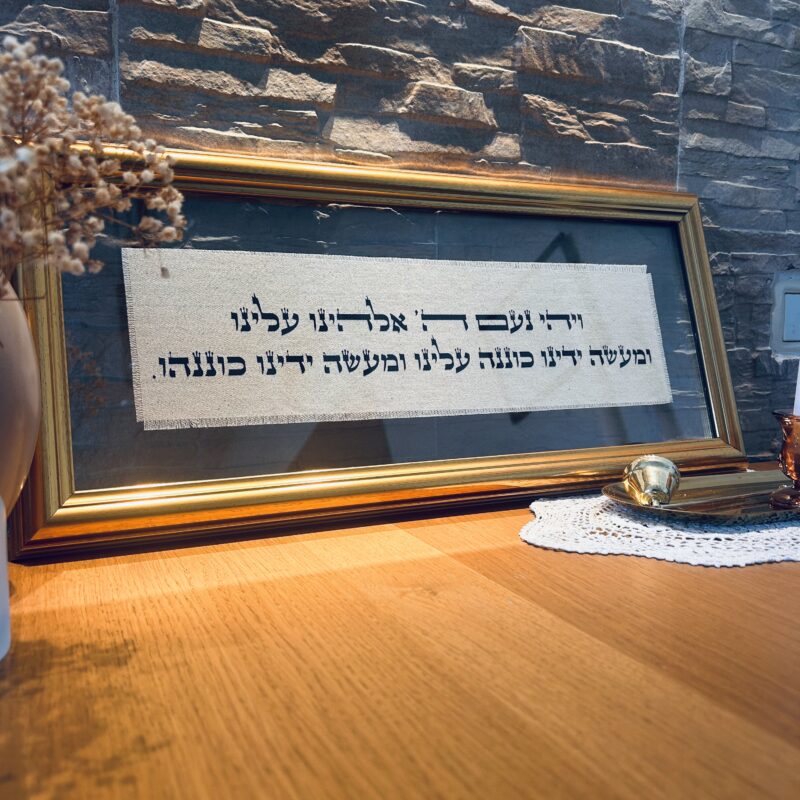 ויהי נעם ה' אלהינו עלינו
ומעשה ידינו כוננה עלינו ומעשה ידינו כוננהו.